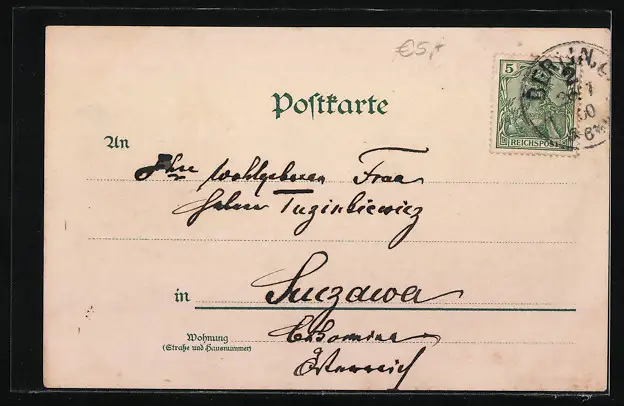 €5,-
5
REICHSPOST
BERLIN, C.
00
Postkarte
An
Ihre Wohlgeboren Frau
Tuzinkiewicz
in Suczawa
Wohnung
(Straße und Hausnummer)
Bukowina
Österreich